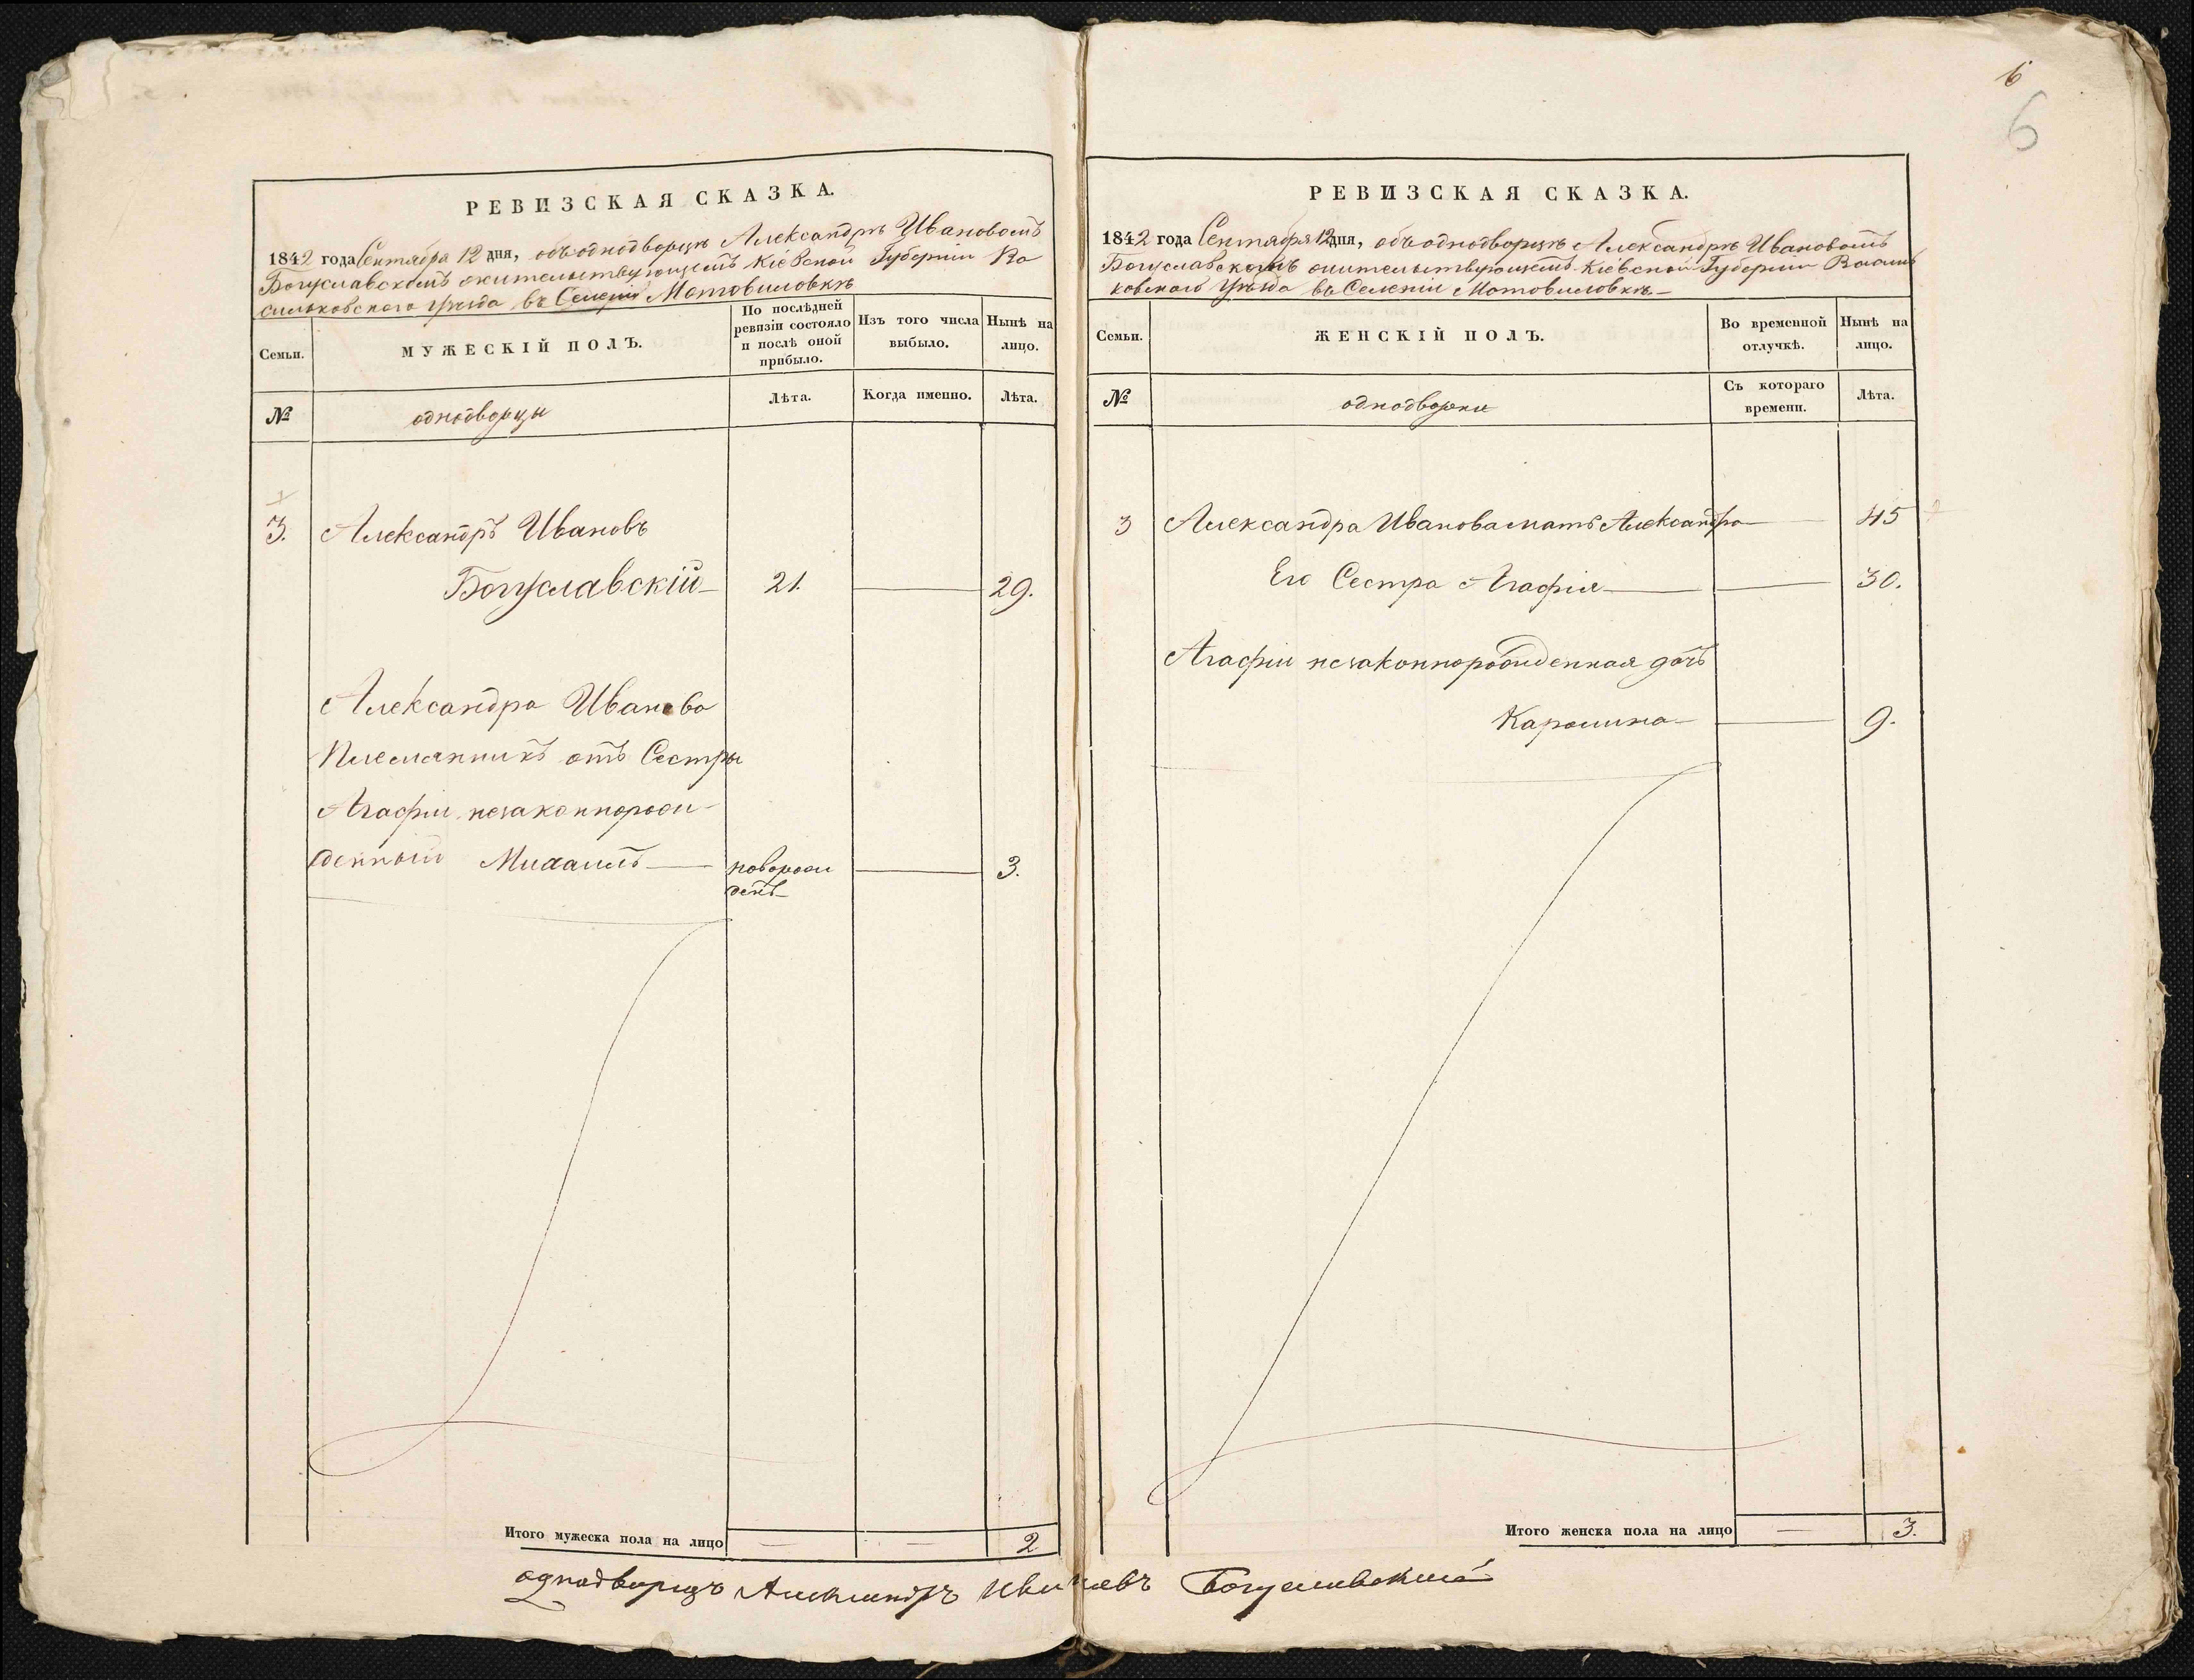 РЕВИЗСКАЯ СКАЗКА.
1842 года Сентября 12 дня, объ однодворцѣ Александрѣ Ивановомъ
Богуславскомъ жительствующемъ Кіевской Губерніи Ва
сильковскаго уѣзда въ Селеніи Мотовиловкѣ
Семьи.
МУЖЕСКІЙ ПОЛЪ.
По послѣдней
ревизіи состояло
и послѣ оной
прибыло.
Изъ того числа
выбыло.
Нынѣ на
лицо.
№
однодворцы
Лѣта.
Когда именно.
Лѣта.
3. Александръ Ивановъ
Богуславскій 21. 29.
Александра Иванова
Племянникъ отъ Сестры
Агафіи незаконнорож
денный Михаилъ новорож 3.
денъ
Итого мужеска пола на лицо — — 2
6
6
РЕВИЗСКАЯ СКАЗКА.
1842 года Сентября 12 дня, объ однодворцѣ Александрѣ Ивановомъ
Богуславскомъ жительствующемъ Кіевской Губерніи Василь
ковскаго уѣзда въ Селеніи Мотовиловкѣ
Семьи.
ЖЕНСКІЙ ПОЛЪ.
Во временной
отлучкѣ.
Нынѣ на
лицо.
№
однодворки
Съ котораго
времени.
Лѣта.
3 Александра Иванова мать Александра — 45
Его Сестра Агафія — 30.
Агафіи незаконнорожденная дочь
Каролина — 9.
Итого женска пола на лицо — 3.
однодворецъ Александръ Ивановъ Богуславскій